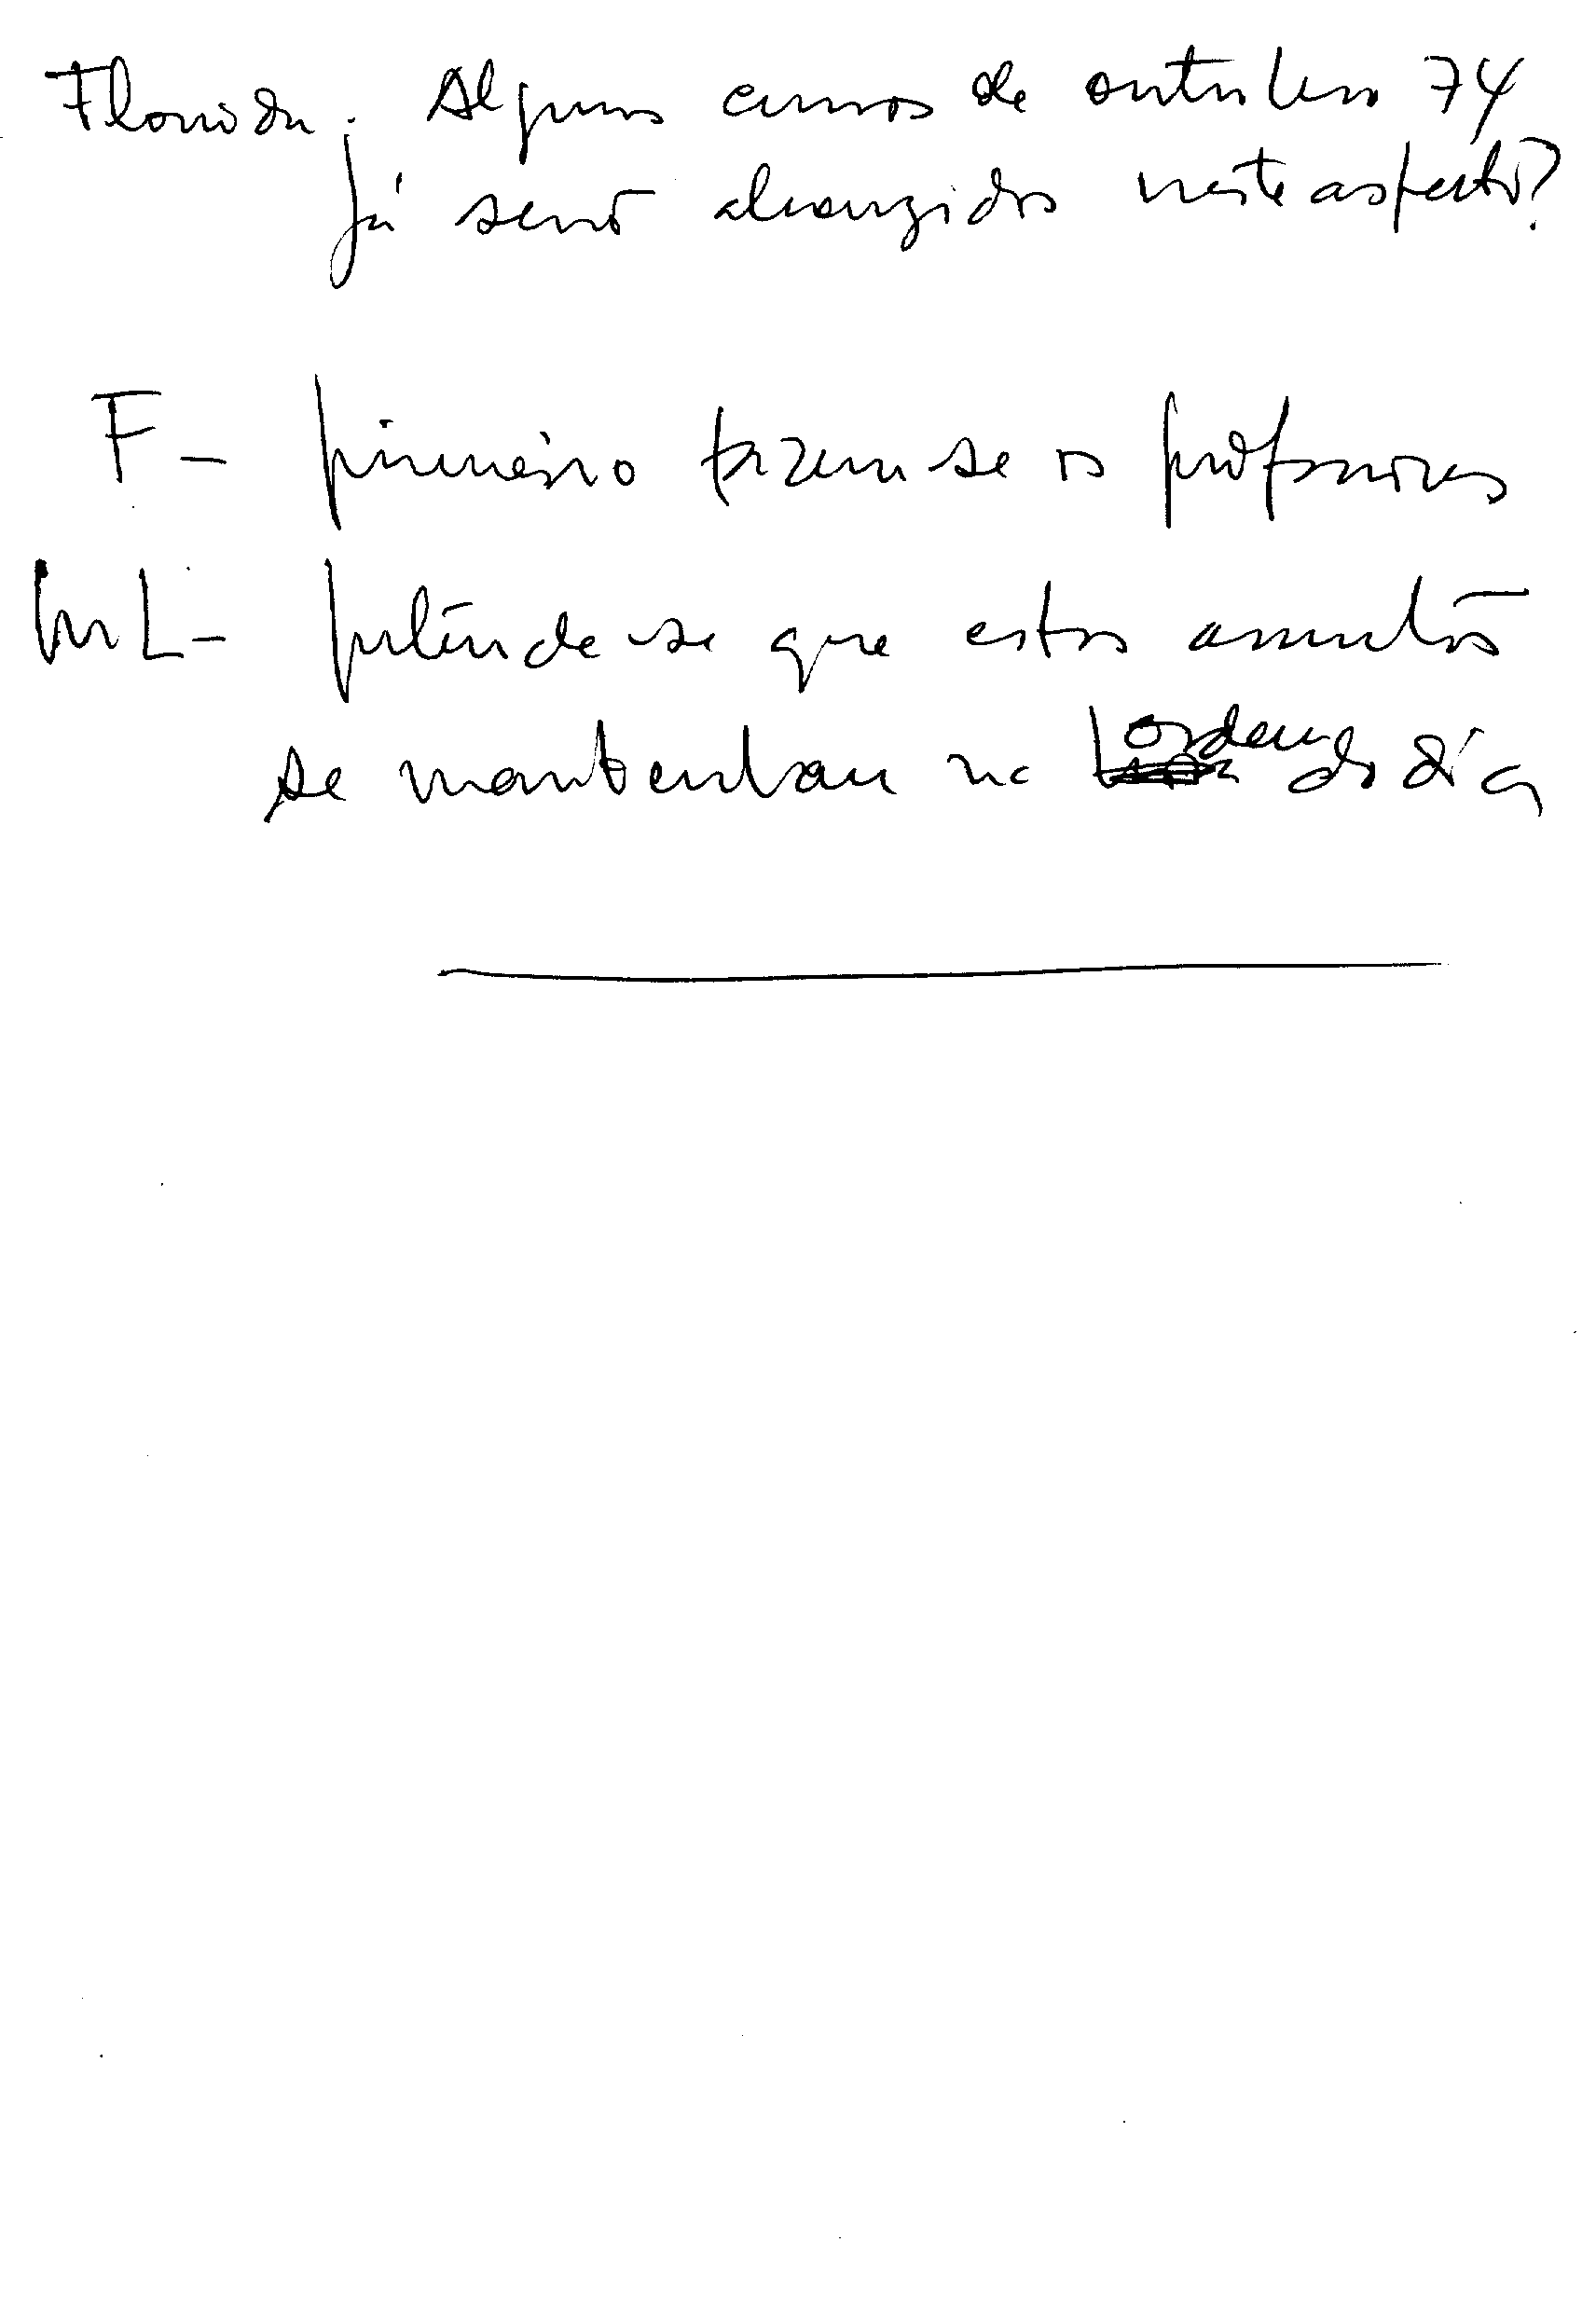 Florida: Alguns cursos de outubro 74
já serão abrangidos neste aspecto?
F - primeiro fazem-se os professores
ML - pretende-se que estes assuntos
se mantenham na ordem do dia